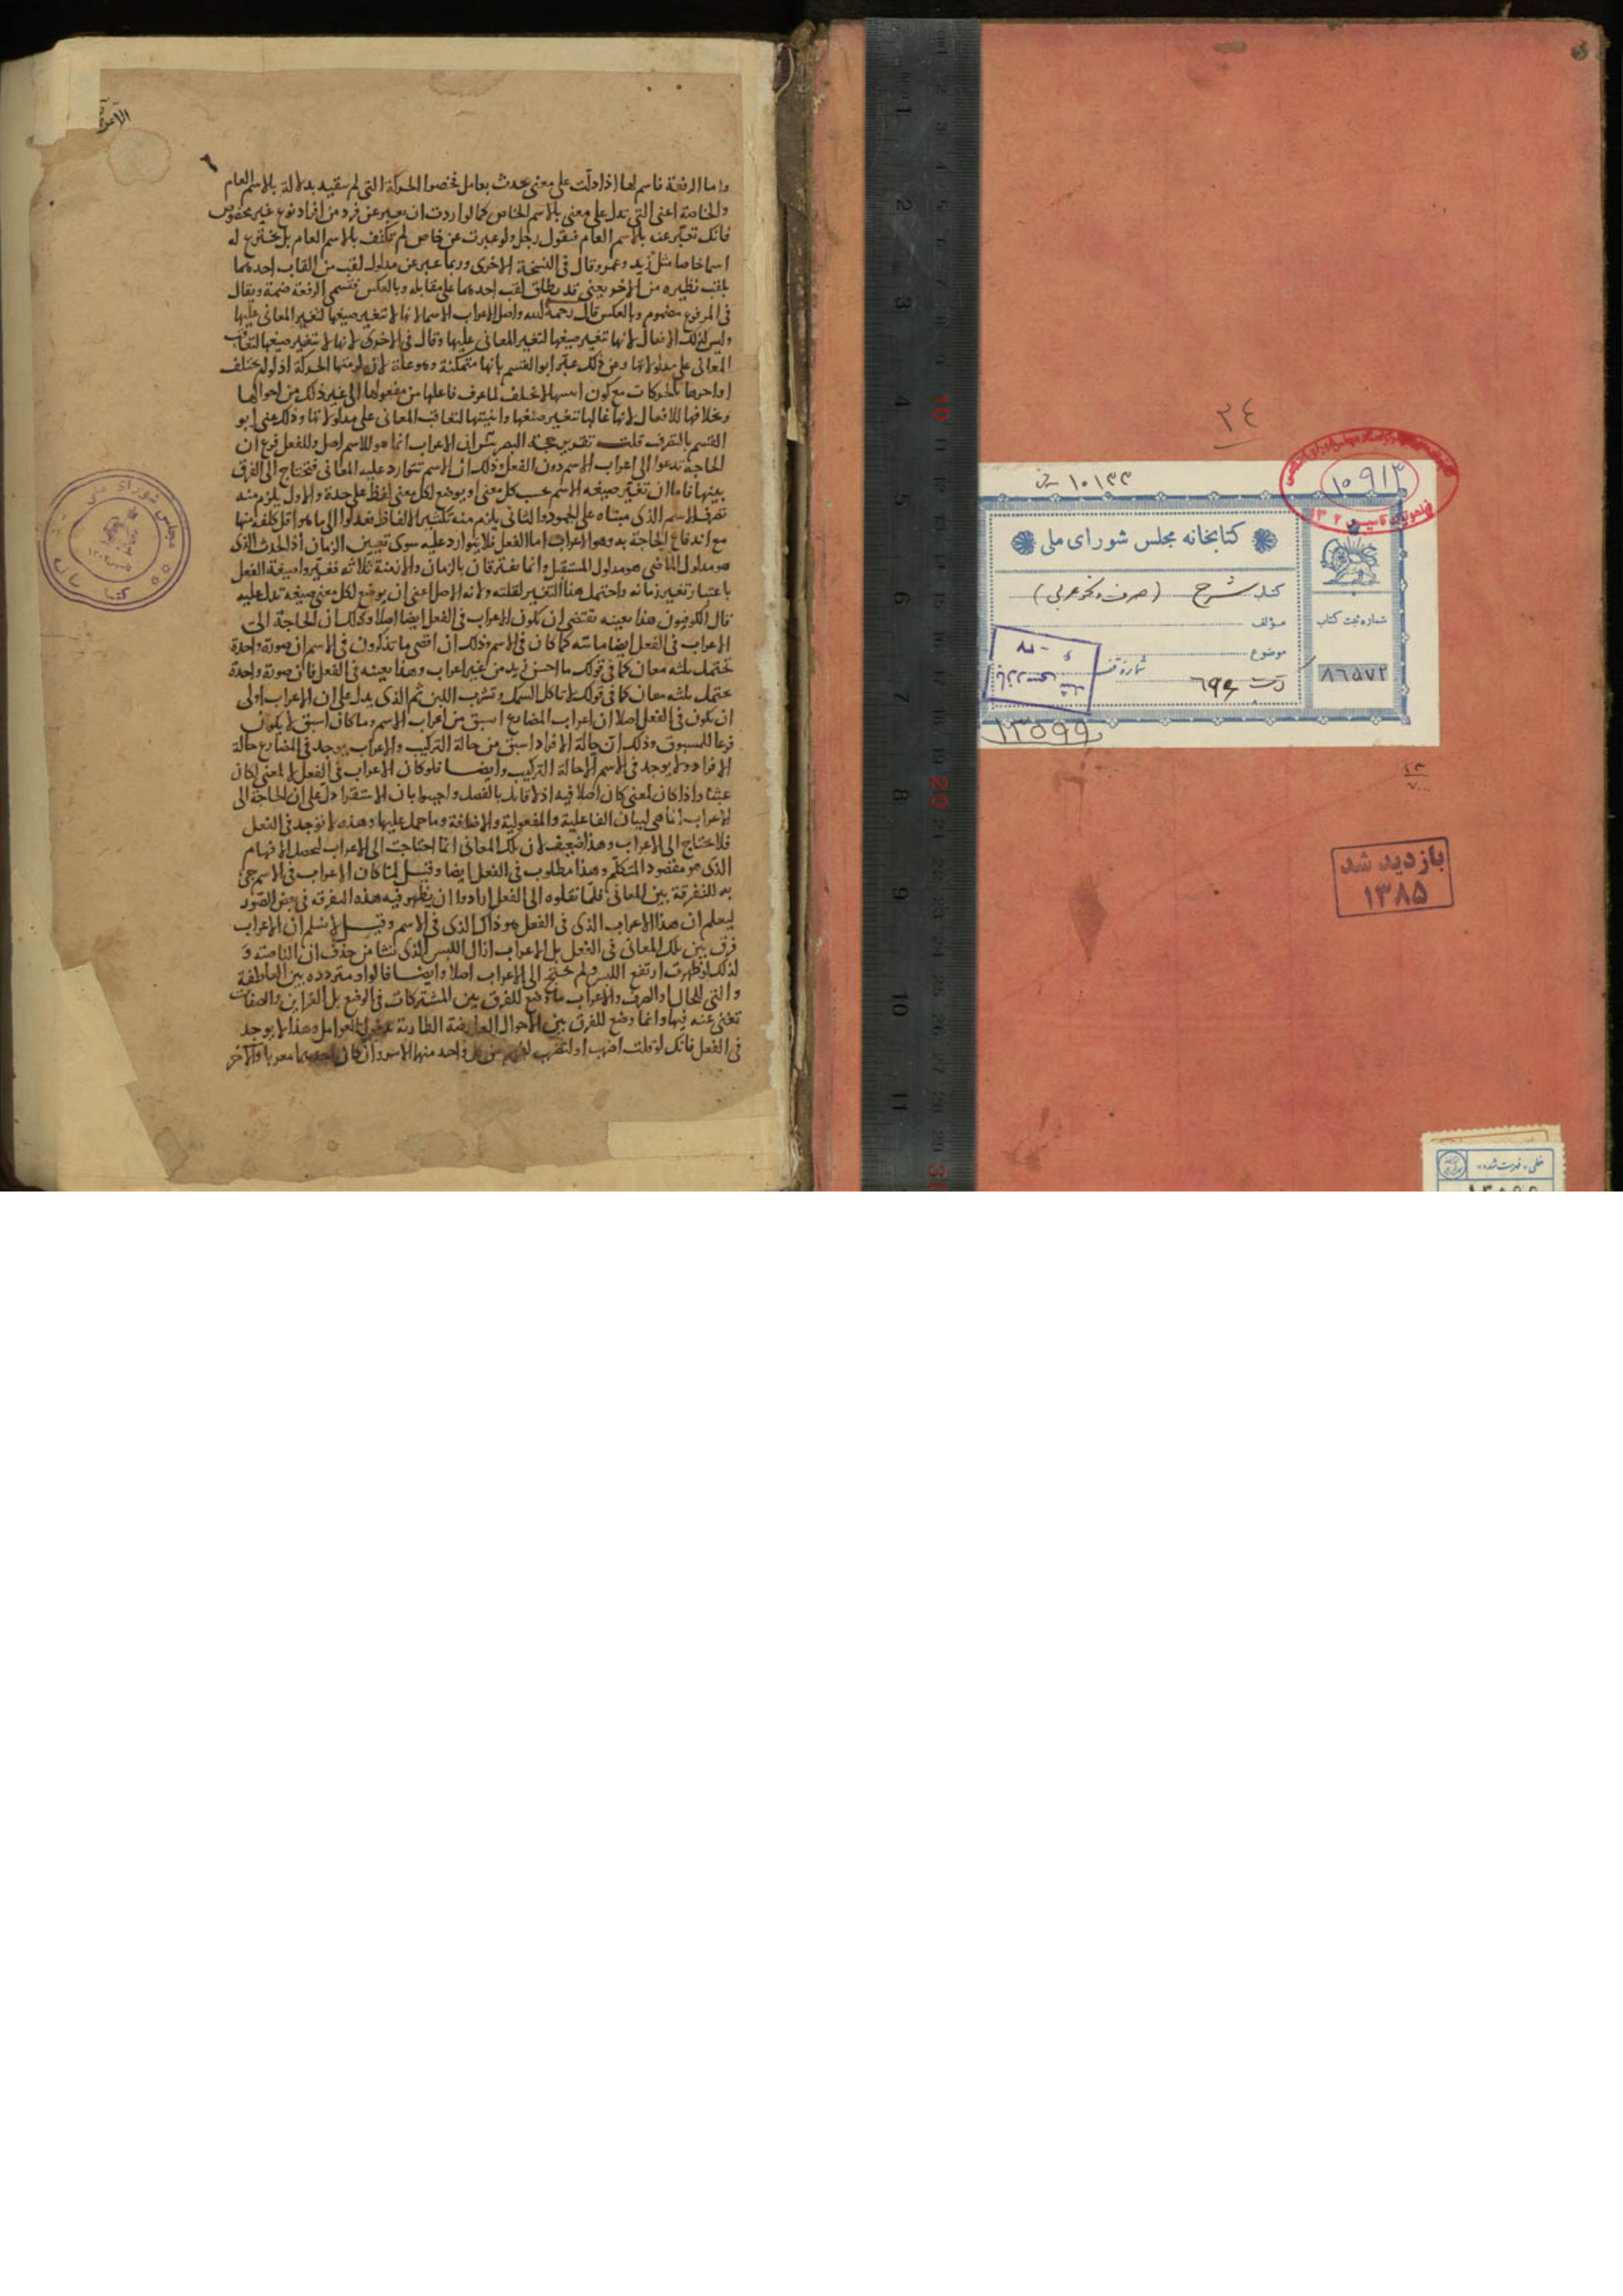 واما الرفعة فاسم لها اذا دلّت على معنى يحدث بعامل فخصوا الحركة التى لم تتقيد بدلالة بالاسم العام
والخاصة اعنى التى تدل على معنى بالاسم الخاص كما لو اردت ان تعبر عن فرد من افراد نوع غير مخصوص
فانك تعبّر عنه بالاسم العام فتقول رجل ولو عبرت عن خاص لم تكتف بالاسم العام بل تخترع له
اسما خاصا مثل زيد وعمرو وقال فى النسخة الاخرى وربما عبر عن مدلول لقب من القاب احدهما
بلقب نظيره من الاخر يعنى قد يطلق لقب احدهما على مقابله وبالعكس فتسمى الرفعة ضمة ويقال
فى المرفوع مضموم وبالعكس قال رحمه الله واصل الاعراب الاسماء لانها لا تتغير صيغها لتغير المعانى عليها
وليس كذلك الافعال لانها تتغير صيغها لتغير المعانى عليها وقال فى الاخرى لانها لا تتغير صيغها لتعاقب
المعانى على مدلولاتها وعن ذلك عبّر ابو القسم بانها متمكنة
اواخرها بالحركات مع كون لما عرف فاعلها من مفعولها الى غير ذلك من احوالها
وبخلافها الافعال لانها غالبا تتغير صيغها وابنيتها لتعاقب المعانى على مدلولاتها وذلك عنى ابو
القسم بالتصرف قلت تقرير حجة البصريين ان الاعراب انما هو للاسم اصل وللفعل فرع ان
الحاجة تدعوا الى اعراب الاسم دون الفعل وذلك ان الاسم تتوارد عليه المعانى فتحتاج الى الفرق
بينها فاما ان تغير صيغه الاسم بحسب كل معنى او يوضع لكل معنى لفظ على حدة والاول يلزم منه
تصرف الاسم الذى مبناه على الجمود والثانى يلزم منه تكثير الالفاظ فعدلوا الى ما هو اقل كلفه منها
مع اندفاع الحاجة به وهو الاعراب اما الفعل فلا يتوارد عليه سوى تعيين الزمان اذ الحدث الذى
هو مدلول الماضى هو مدلول المستقبل وانما يفترقان بالزمان والازمنة ثلاثه فغيّروا صيغة الفعل
باعتبار تغير زمانه واحتمل هنا التغير لقلته ولانه الاصل اعنى ان يوضع لكل معنى صيغه تدل عليه
قال الكوفيون هذا بعينه يقتضى ان يكون الاعراب فى الفعل ايضا اصلا وذلك ان الحاجة الى
الاعراب فى الفعل ايضا ماسّه كما كان فى الاسم وذلك ان اقصى ما تذكرون فى الاسم ان صورة واحدة
تحتمل ثلثه معان كما فى قولك ما احسن زيد من غير اعراب وهذا بعينه فى الفعل فان صورة واحدة
تحتمل ثلثه معان كما فى قولك لا تاكل السمك وتشرب اللبن ثم الذى يدل على ان الاعراب اولى
ان يكون فى الفعل اصلا ان اعراب المضارع اسبق من اعراب الاسم وما كان اسبق لا يكون
فرعا للمسبوق وذلك ان حالة الافراد اسبق من حالة التركيب والاعراب يوجد فى المضارع حالة
الافراد ولا يوجد فى الاسم الا حالة التركيب وايضا فلو كان الاعراب فى الفعل لا لمعنى لكان
عبثا واذا كان لمعنى كان اصلا فيه اذ لا قائل بالفصل واجيبوا بان الاستقرا دل على ان الحاجة الى
الاعراب انما هى لبيان الفاعلية والمفعولية والاضافة وما حمل عليها وهذه لا توجد فى الفعل
فلا يحتاج الى الاعراب وهذا ضعيف لان تلك المعانى انما احتاجت الى الاعراب ليحصل الافهام
الذى هو مقصود المتكلم وهذا مطلوب فى الفعل ايضا وقيل لما كان الاعراب فى الاسم جئ
به للتفرقة بين المعانى فلما نقلوه الى الفعل ارادوا ان يظهر فيه هذه التفرقه فى بعض الصور
ليعلم ان هذا الاعراب الذى فى الفعل هو ذاك الذى فى الاسم وقيل لا نسلم ان الاعراب
فرق بين تلك المعانى فى الفعل بل الاعراب ازال اللبس الذى نشا من حذف ان الناصبه و
لذلك لو ظهرت ارتفع اللبس ولم يحتج الى الاعراب اصلا وايضا فالواو مترددة بين العاطفة
والتى للحال والصرف والاعراب ما وضع للفرق بين المشتركات فى الوضع بل القراين والصفات
تغنى عنه فيها وانما وضع للفرق بين الاحوال العارضة الطارئة بدخول العوامل وهذا لا يوجد
فى الفعل فانك لو قلت اضرب او لتضرب لفهم من كل واحد منها الامر وان كان احدهما معربا والآخر
مجلس شورای ملی
٣٤
١٠١٣٣
١٠٩١٣
كتابخانه مجلس شورای ملی
کتاب شرح (صرف و نحو عربی)
مؤلف
موضوع
شماره ثبت کتاب
٨٦٥٧٢
١٣٥٩٩
بازدید شد
١٣٨٥
خطی فهرست شده